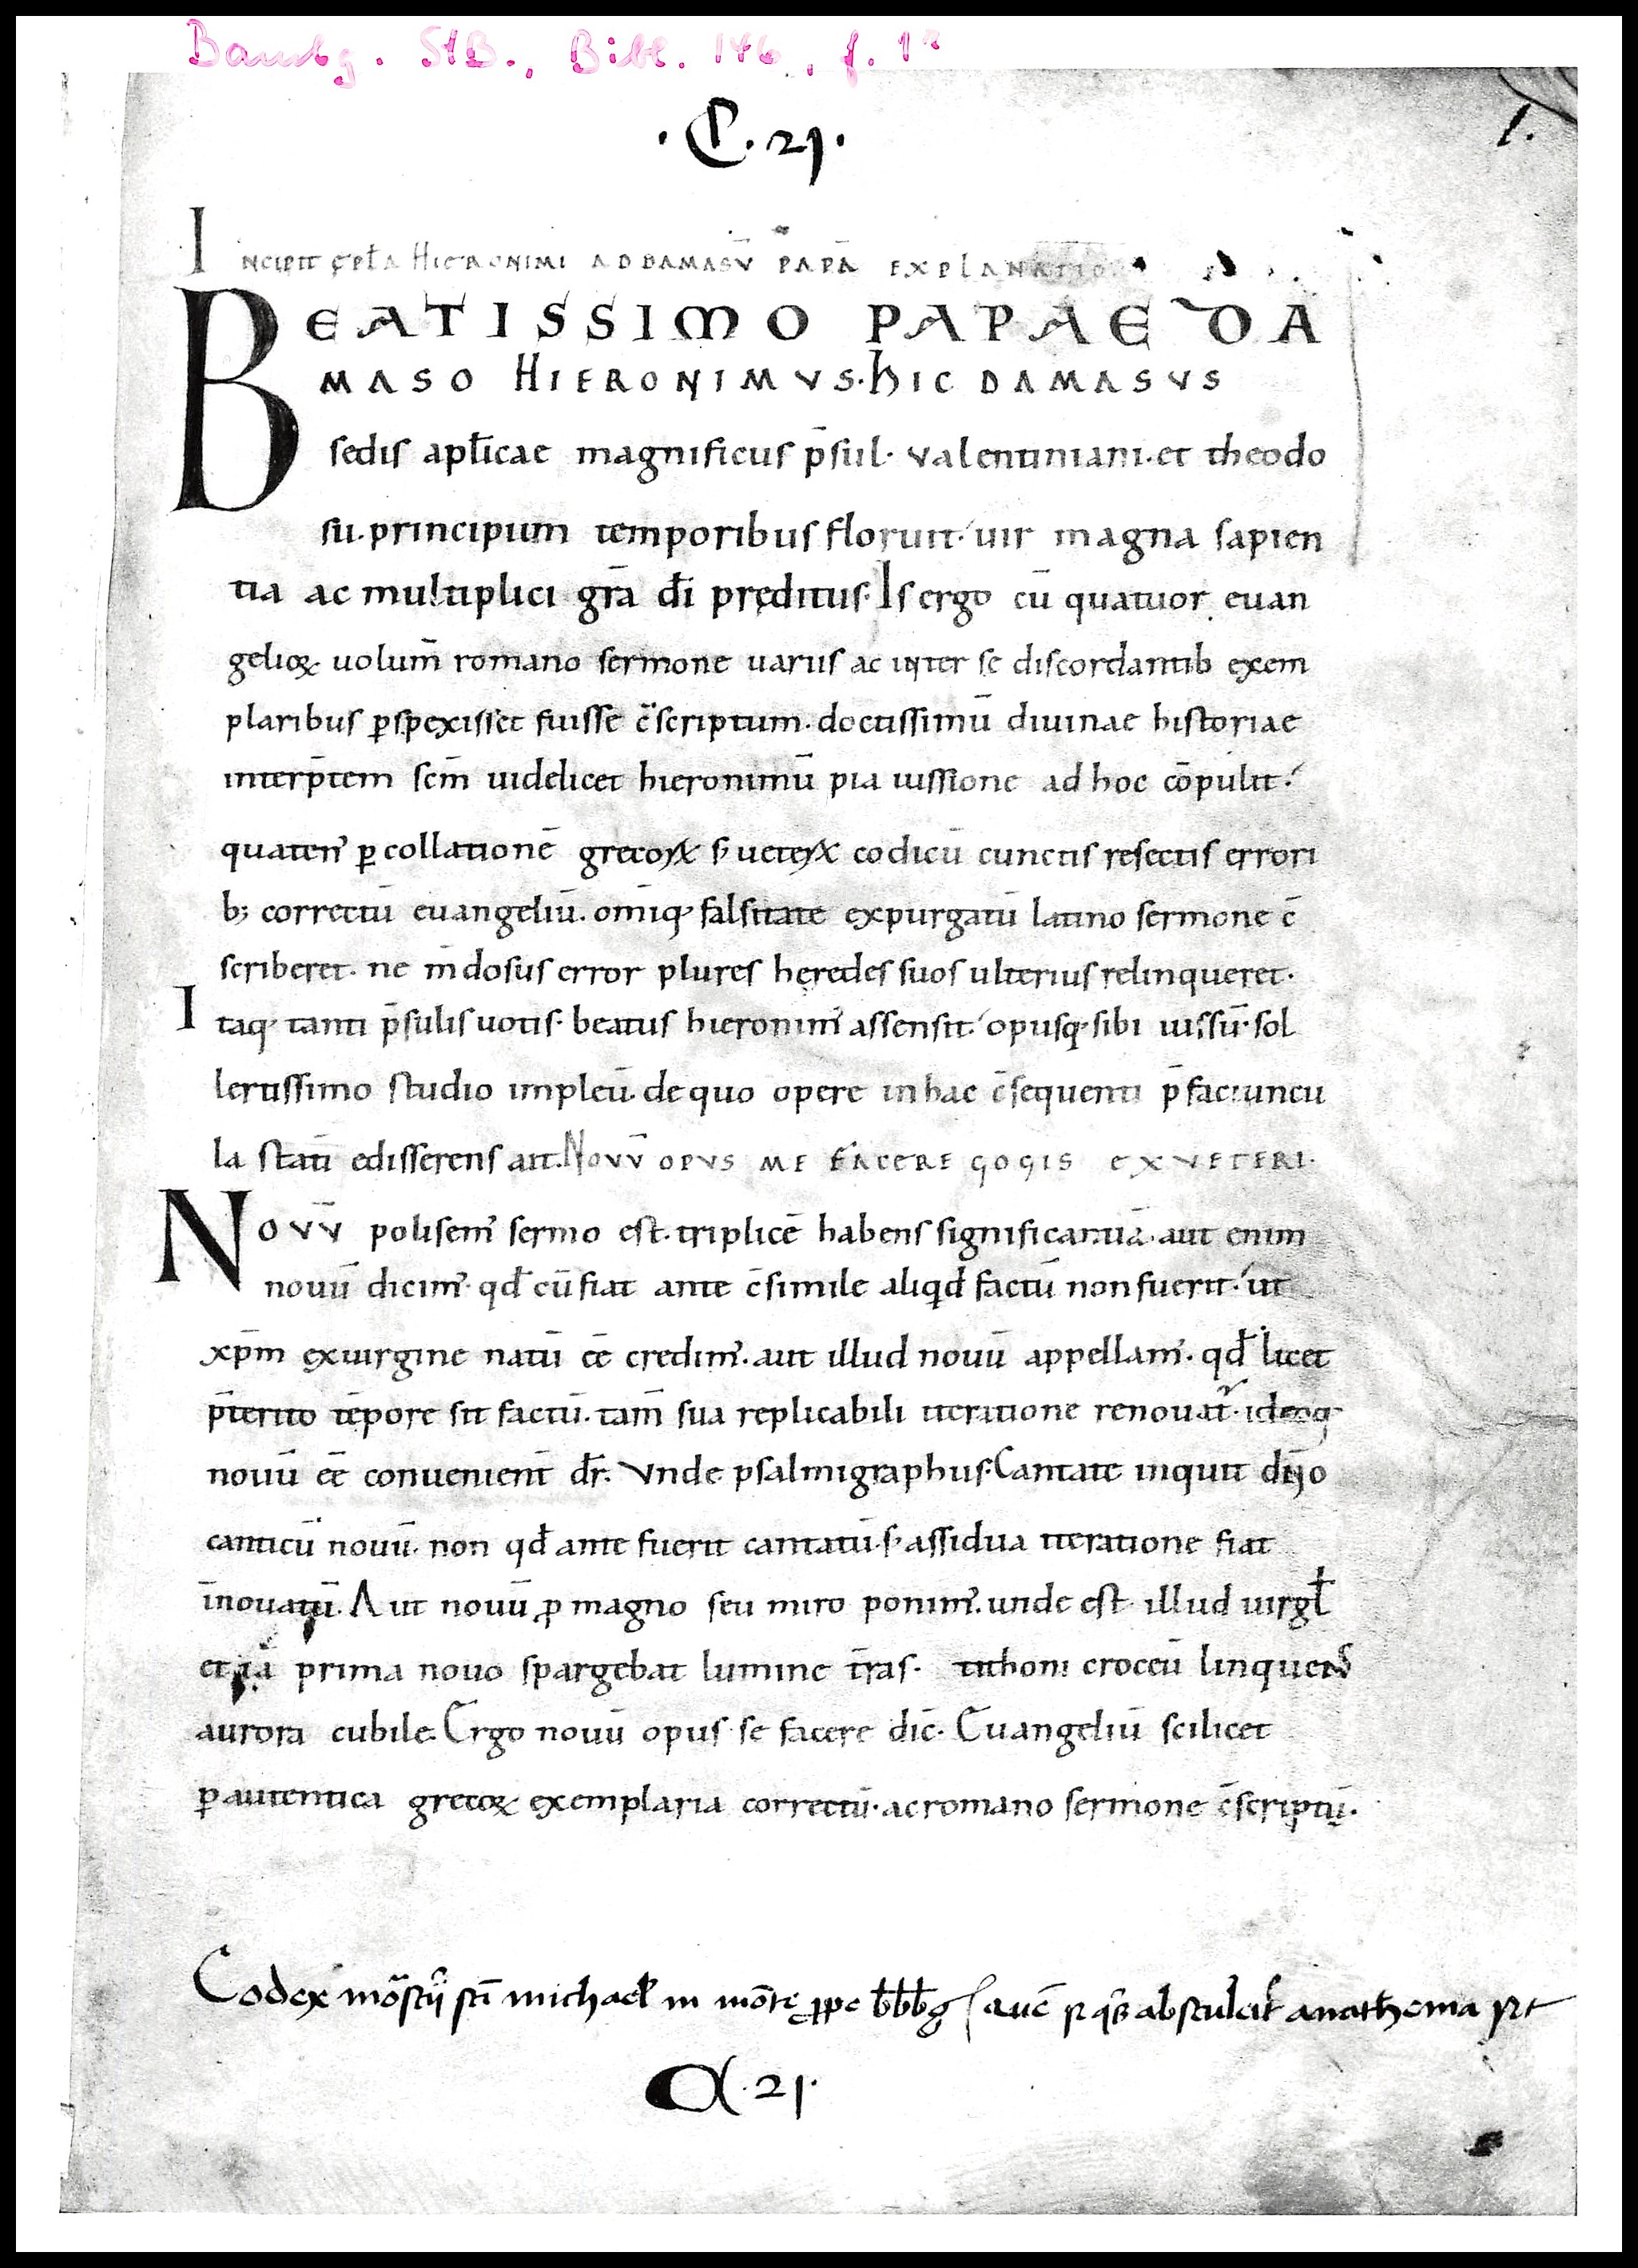 Bambg. StB., Bibl. 146, f. 1r
1.
· C · 21 ·
INCIPIT EPTLA HIERONIMI AD DAMASV̄ PAPĀ EXPLANATIO
BEATISSIMO PAPAE DA
MASO HIERONIMVS · HIC DAMASVS
sedis apl̄icae magnificus p̄sul · valentiniani · et theodo
sii · principum temporibus floruit · uir magna sapien
tia ac multiplici gr̄a dī pręditus · Is ergo cū quatuor euan
gelioꝝ uolum̄ romano sermone uariis ac inter se discordantib exem
plaribus ꝑspexisset fuisse c̄scriptum · doctissimū diuinae historiae
interp̄tem sc̄m uidelicet hieronimū pia iussione ad hoc cōpulit ·
quaten᾽ ꝑ collationē grecoꝝ s᾽ ueteꝝ codicū cunctis resectis errori
b; correctū euangeliū · omīq· falsitate expurgatū latino sermone c̄
scriberet · ne m̄dosus error plures heredes suos ulterius relinqueret ·
Itaq· tanti p̄sulis uotis · beatus hieronim᾽ assensit · opusq· sibi iussū · sol
lertissimo studio impleū · de quo opere in hac c̄sequenti p̄faciuncu
la statī edisserens ait · NOVV̄ OPVS ME FACERE COGIS EX VETERI ·
NOVV̄ polisem᾽ sermo est · triplicē habens significantiā · aut enim
nouū dicim᾽ · qđ cū fiat ante c̄simile aliqđ factū non fuerit · ut
xp̄m ex uirgine natū eē credim᾽ · aut illud nouū appellam᾽ · qđ licet
p̄terito tēpore sit factū · tam̄ sua replicabili iteratione renouat᾽ · ideoq·
nouū eē conuenient̄ dr̄ · Vnde psalmigraphus · Cantate inquit dn̄o
canticū nouū · non qđ ante fuerit cantatū · s᾽ assidua iteratione fiat
īnouatū · Aut nouū ꝓ magno seu miro ponim᾽ · unde est illud uirgl̄
et iā prima nouo spargebat lumine tr̄as · tithoni croceū linquens
aurora cubile · Ergo nouū opus se facere dic̄ · Euangeliū scilicet
ꝑ autentica grecoꝝ exemplaria correctū · ac romano sermone c̄scriptū ·
Codex mōstii sc̄i michael̄ in mōte ꝓpe b̄b̄b̄g anathema sit
C · 21 ·